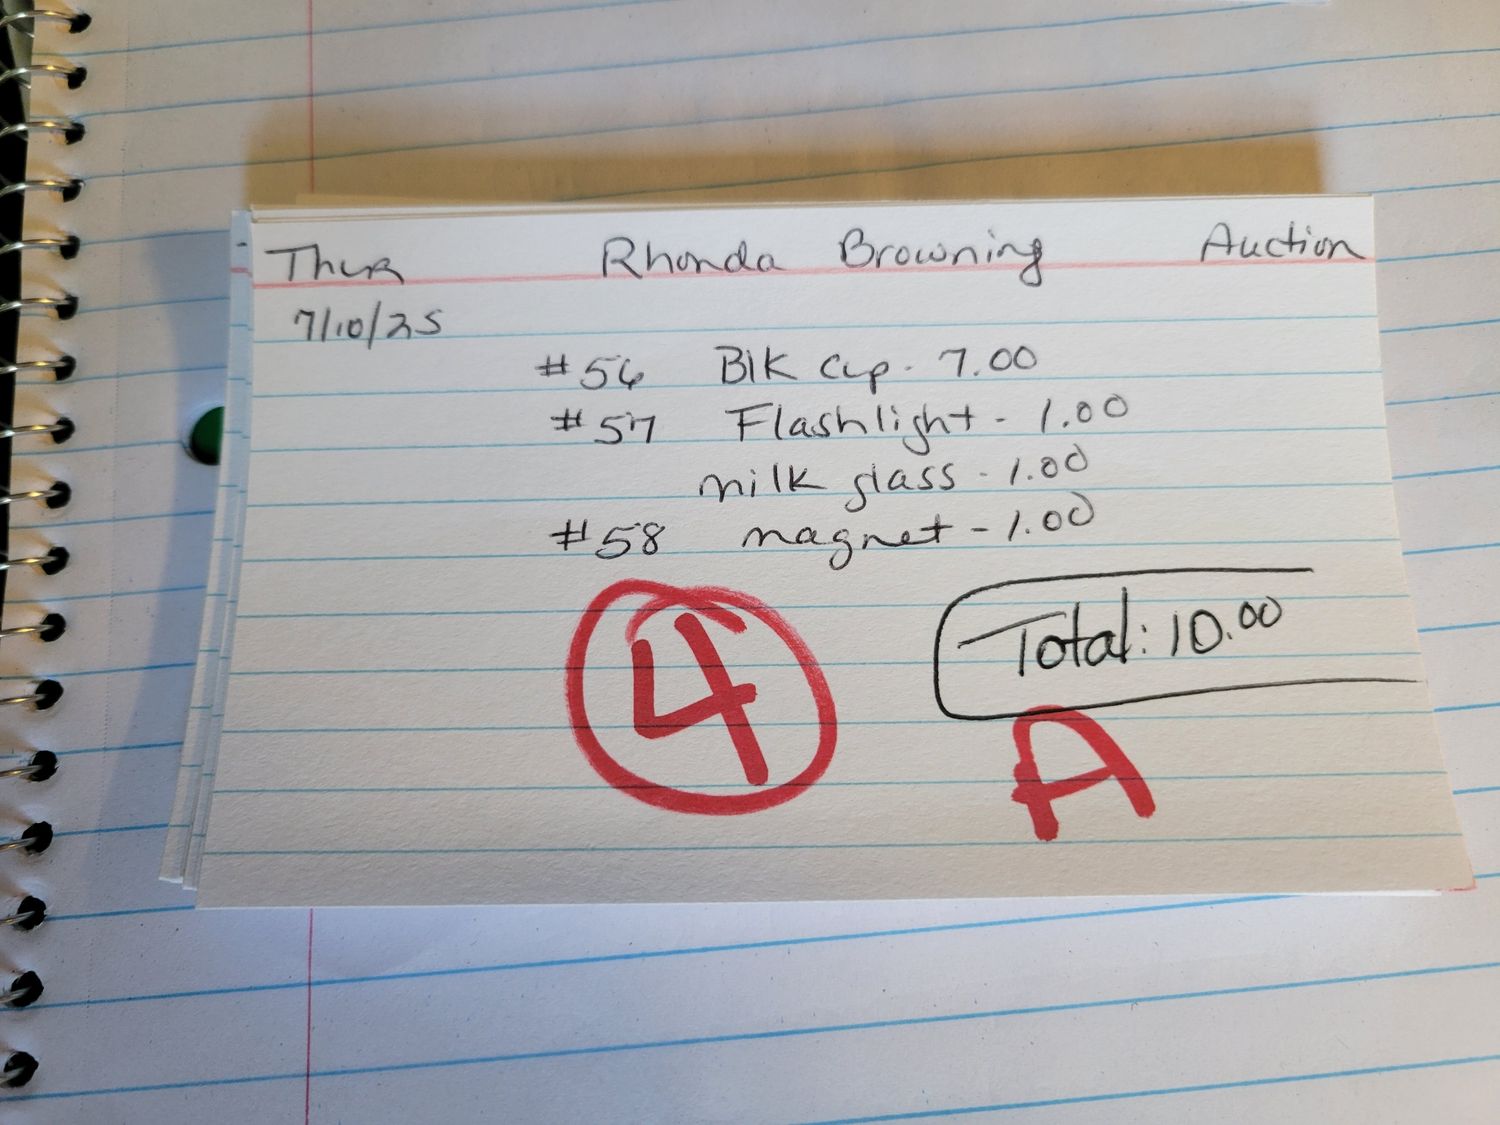 Thur Rhonda Browning Auction
7/10/25
#56 Blk cup - 7.00
#57 Flashlight - 1.00
milk glass - 1.00
#58 magnet - 1.00
Total: 10.00
4
A